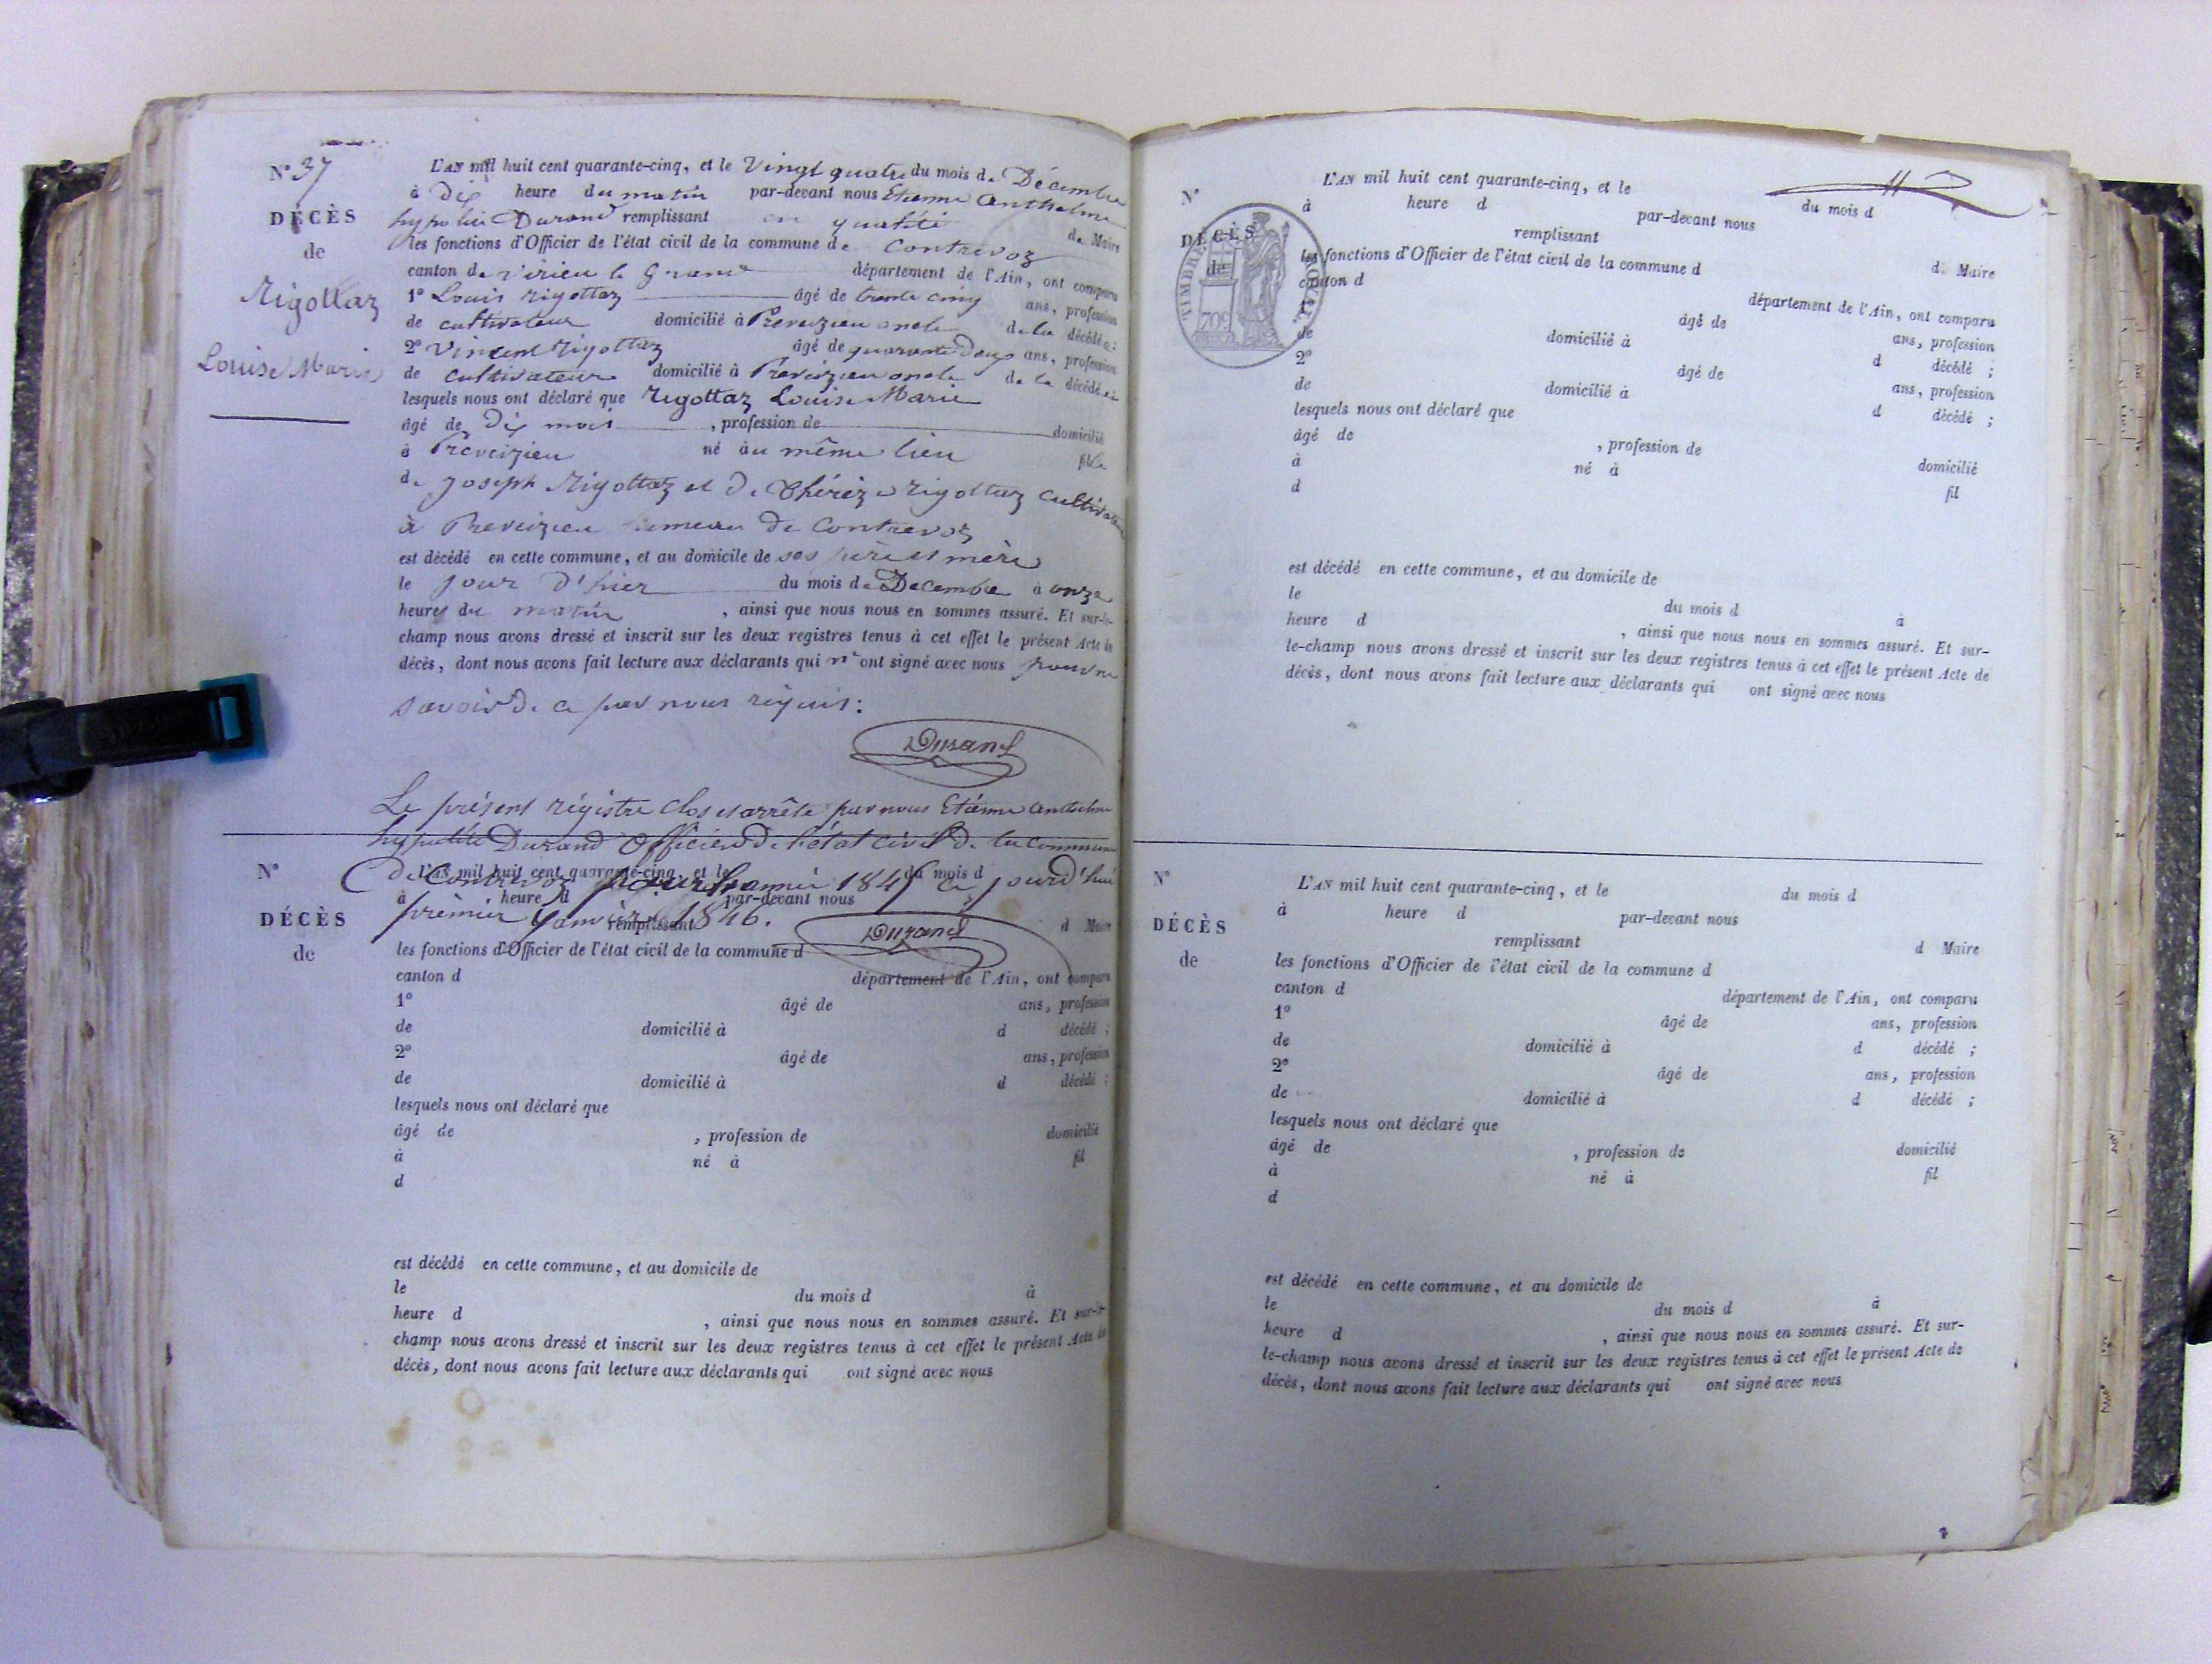 N° 37
DÉCÈS
de
Rigottaz
Louise Marie
L'AN mil huit cent quarante-cinq, et le Vingt quatre du mois de Décembre
à Dix heure du matin par-devant nous Etienne Anthelme
hypolite Durand remplissant en qualité de Maire
les fonctions d'Officier de l'état civil de la commune de Contrevoz
canton de Virieu le Grand département de l'Ain, ont comparu
1° Louis Rigottaz âgé de trente cinq ans, profession
de cultivateur domicilié à Preveizieu oncle de la décédée ;
2° Vincent Rigottaz âgé de quarante deux ans, profession
de cultivateur domicilié à Preveizieu oncle de la décédée
lesquels nous ont déclaré que Rigottaz Louise Marie
âgé de Dix mois , profession de domicilié
à Preveizieu né au même lieu fille
de Joseph Rigottaz et de Thérèze Rigottaz cultivateurs
à Preveizieu hameau de Contrevoz
est décédé en cette commune, et au domicile de ses père et mère
le jour d'hier du mois de Decembre à onze
heures du matin , ainsi que nous nous en sommes assuré. Et sur-le-
champ nous avons dressé et inscrit sur les deux registres tenus à cet effet le présent Acte de
décès, dont nous avons fait lecture aux déclarants qui n'ont signé avec nous pour ne
savoir de ce par nous réquis :
Durand
Le présent régistre clos et arrêté par nous Etienne anthelme
hypolite Durand Officier de l'état civil de la commune
de Contrevoz pour l'année 1845 ce jourd'hui
prémier Janvier 1846.
Durand
N°
DÉCÈS
de
L'AN mil huit cent quarante-cinq, et le du mois d
à heure d par-devant nous
remplissant d Maire
les fonctions d'Officier de l'état civil de la commune d
canton d département de l'Ain, ont comparu
1° âgé de ans, profession
de domicilié à d décédé ;
2° âgé de ans, profession
de domicilié à d décédé ;
lesquels nous ont déclaré que
âgé de , profession de domicilié
à né à fil
d
est décédé en cette commune, et au domicile de
le du mois d à
heure d , ainsi que nous nous en sommes assuré. Et sur-le-
champ nous avons dressé et inscrit sur les deux registres tenus à cet effet le présent Acte de
décès, dont nous avons fait lecture aux déclarants qui ont signé avec nous
N°
DÉCÈS
de
TIMBRE ROYAL
70c
L'AN mil huit cent quarante-cinq, et le du mois d
à heure d par-devant nous
remplissant d Maire
les fonctions d'Officier de l'état civil de la commune d
canton d département de l'Ain, ont comparu
1° âgé de ans, profession
de domicilié à d décédé ;
2° âgé de ans, profession
de domicilié à d décédé ;
lesquels nous ont déclaré que
âgé de , profession de domicilié
à né à fil
d
est décédé en cette commune, et au domicile de
le du mois d à
heure d , ainsi que nous nous en sommes assuré. Et sur-
le-champ nous avons dressé et inscrit sur les deux registres tenus à cet effet le présent Acte de
décès, dont nous avons fait lecture aux déclarants qui ont signé avec nous
N°
DÉCÈS
de
L'AN mil huit cent quarante-cinq, et le du mois d
à heure d par-devant nous
remplissant d Maire
les fonctions d'Officier de l'état civil de la commune d
canton d département de l'Ain, ont comparu
1° âgé de ans, profession
de domicilié à d décédé ;
2° âgé de ans, profession
de domicilié à d décédé ;
lesquels nous ont déclaré que
âgé de , profession de domicilié
à né à fil
d
est décédé en cette commune, et au domicile de
le du mois d à
heure d , ainsi que nous nous en sommes assuré. Et sur-
le-champ nous avons dressé et inscrit sur les deux registres tenus à cet effet le présent Acte de
décès, dont nous avons fait lecture aux déclarants qui ont signé avec nous